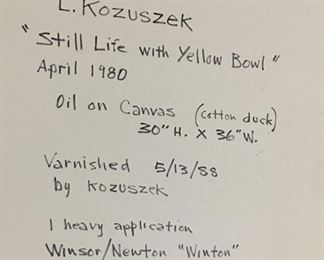 L. Kozuszek
"Still Life with Yellow Bowl"
April 1980
Oil on Canvas (Cotton duck)
30"H. X 36"W.
Varnished 5/13/88
by Kozuszek
1 heavy application
Winsor/Newton "Winton"